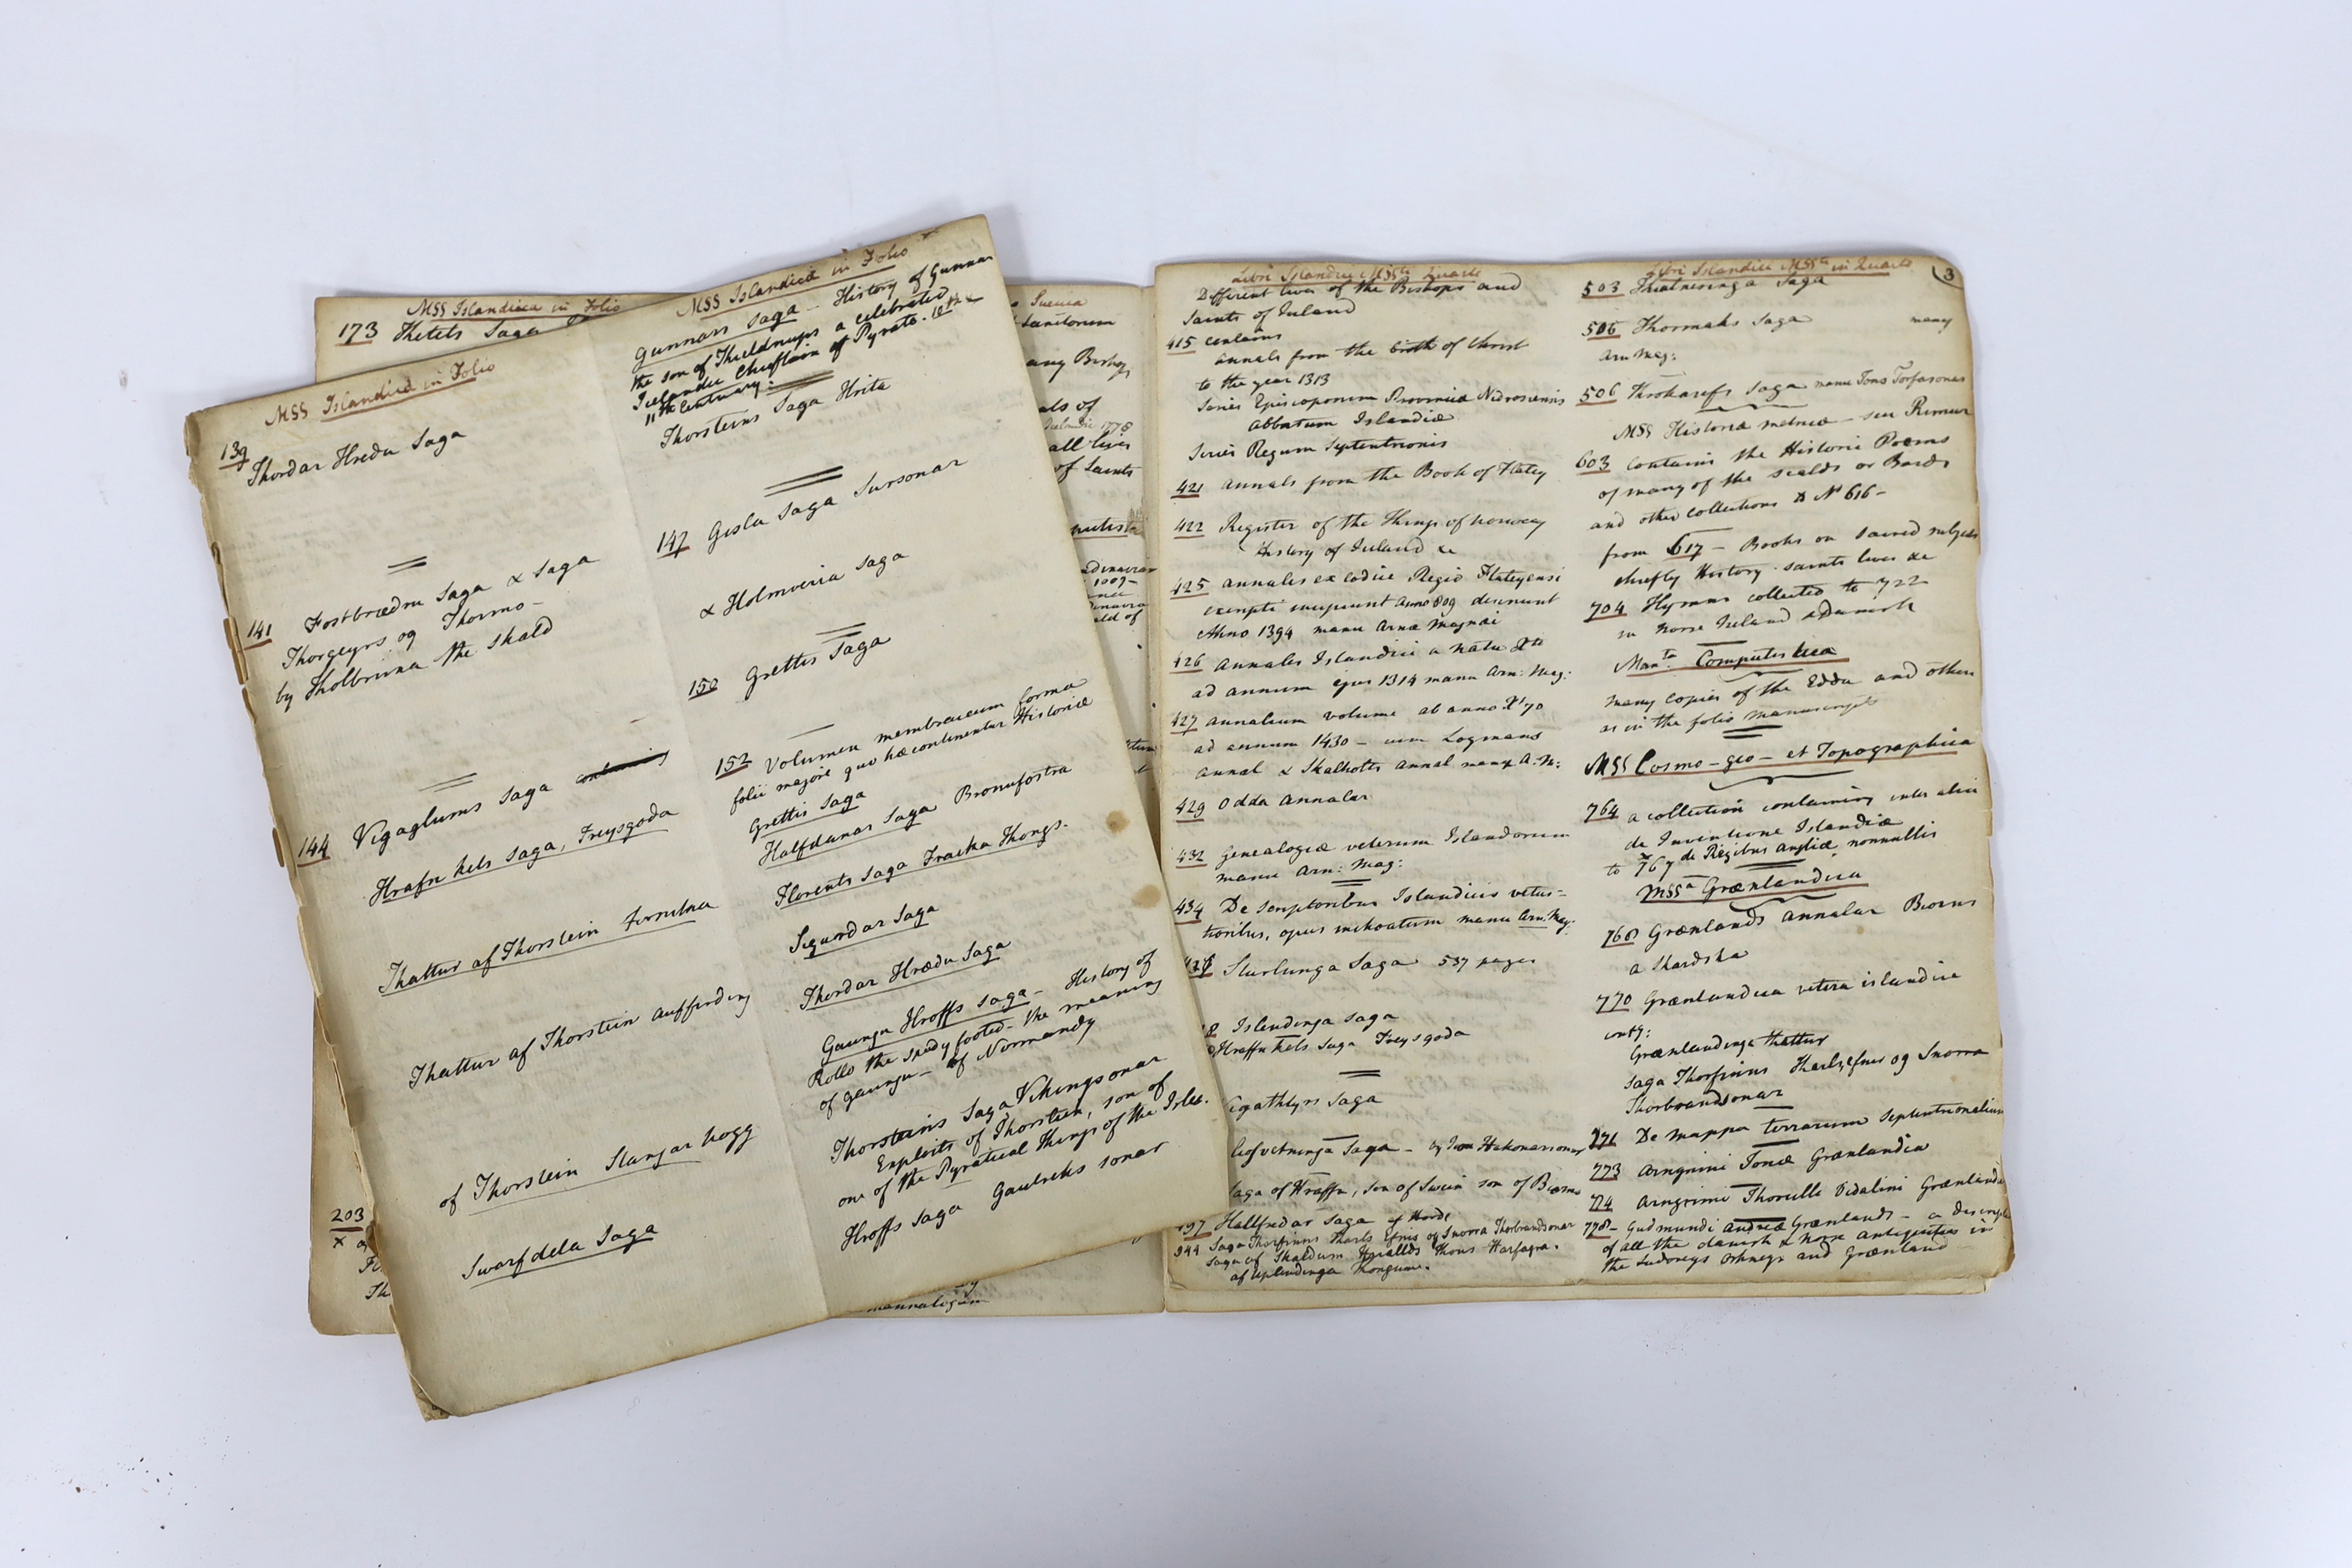 MSS Islandica in Folio
173 Thetels Saga
203
MSS Islandica in Folio
139
Thordar Hredu Saga
141 Fostbrædra Saga & Saga
Thorgeyrs og Thormo-
by Kholbruna the Skald
144 Vigaglums Saga
Hrafn kels Saga, Freysgoda
Thattur af Thorstein
Thattur af Thorstein
of Thorstein Stangar hogg
Swarfdela Saga
MSS Islandica in Folio
Gunnars Saga - History of Gunnar
the son of a celebrated
Icelandic Chieftain of Pyrate.
11th Century.
Thorsteins Saga Hvita
147 Gisla Saga Sursonar
& Holmveria Saga
150 Grettis Saga
152 Volumen membraceum forma
folii majore quo hæ continentur Historiæ
Grettis Saga
Halfdanar Saga Bronufostra
Florents Saga Fracka Khongs.
Sigurdar Saga
Thordar Hrædu Saga
Gaungu Hroffs Saga - History of
Rollo the speedy footed - the meaning
of gaungu - of Normandy
Thorsteins Saga Vikingsonar
Exploits of Thorstein, son of
one of the Pyratical Kings of the Isles.
Hroffs Saga Gautreks sonar
Suecia
Sanctorum
any Bishop
als of
all lives
of Saints
mannalogum
Libri Islandici MSSti Quarto
Different lives of the Bishops and
Saints of Iceland
415 contains
annals from the birth of Christ
to the year 1313
Series Episcoporum Provinciæ Nidrosiensis
Abbatum Islandiæ
Series Regum Septentrionis
421 Annals from the Book of Flatey
422 Register of the Kings of Norway
History of Iceland &c
425 Annales ex codice Regio Flateyensi
excerpti incipiunt anno 809 desinunt
Anno 1394 manu Arnæ Magnæi
426 Annales Islandici a natu Xto
ad annum ejus 1314 manu Arn: Mag:
427 Annalium volume ab anno Xi 70
ad annum 1430 - cum Logmans
annal & Skalholts annal manu A. M:
429 Odda Annalar
432 Genealogiæ veterum Islandorum
manu Arn: Mag:
434 De scriptoribus Islandicis vetus=
tioribus, opus inchoatum manu Arn. Mag:
Sturlunga Saga 537 pages
Islendinga Saga
Hraffn kels Saga Freysgoda
Agathyrs Saga
Liosvetninga Saga - og Hakonarsonar
Saga of Hraffn, son of Swein son of Biorns
497 Hallfredar Saga
544 Saga Thorfinns Karls Efnis og Snorra Thorbrandsonar
Saga of Skaldum Haralds Khons Harfagra.
af Uplendinga Khongum.
Libri Islandici MSSti in Quarto
3
503 Kialnesinga Saga
506 Khormaks Saga manu
Arn Mag:
506 Khrokarefs Saga manu Jons Torfasonar
MSS Historiæ metricæ - seu Rimur
603 contains the Historic Poems
of many of the Scalds or Bards
and other collections to No 616 -
from 617 - Books on sacred subjects
chiefly History saints lives &c
704 Hymns collected to 722
in Norse Iceland & Danish
Manta. Computistica
many copies of the Edda and others
as in the folio manuscripts
MSS Cosmo - geo - et Topographica
764 a collection containing inter alia
de Inventione Islandiæ
to 767 de Regibus Angliæ nonnullis
MSSa Grænlandica
768 Grænlands annalar Biorns
a Skardsha
770 Grænlandica vetera islandice
contg:
Grænlandinga thattur
Saga Thorfinns Karlsefnis og Snorra
Thorbrandsonar
771 De mappa terrarum Septentrionalium
773 Arngrimi Jonæ Grænlandia
774 Arngrimi Thorkilli Vidalini Grænlandia
778 - Gudmundi Andreæ Grænlands - a descrip
of all the danish & Norse antiquities in
the Sudoreys Orkneys and Grænland